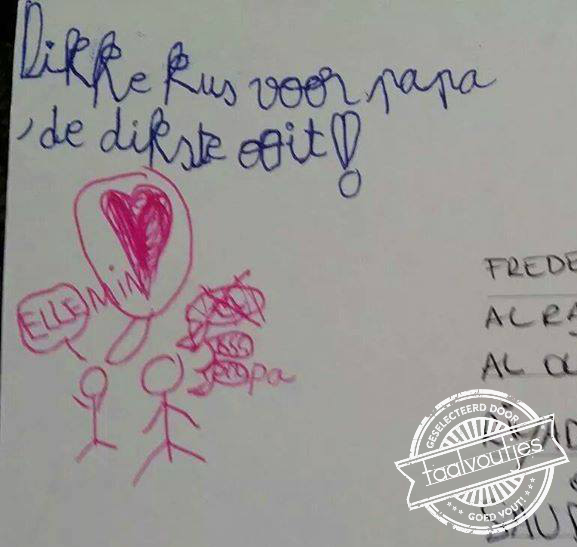 Dikke kus voor papa
, de dikste ooit!
ELLEMIN
papa
FREDE
AL RA
AL OL
RYAD
SAUD
GESELECTEERD DOOR
taalvoutjes
GOED VOUT!